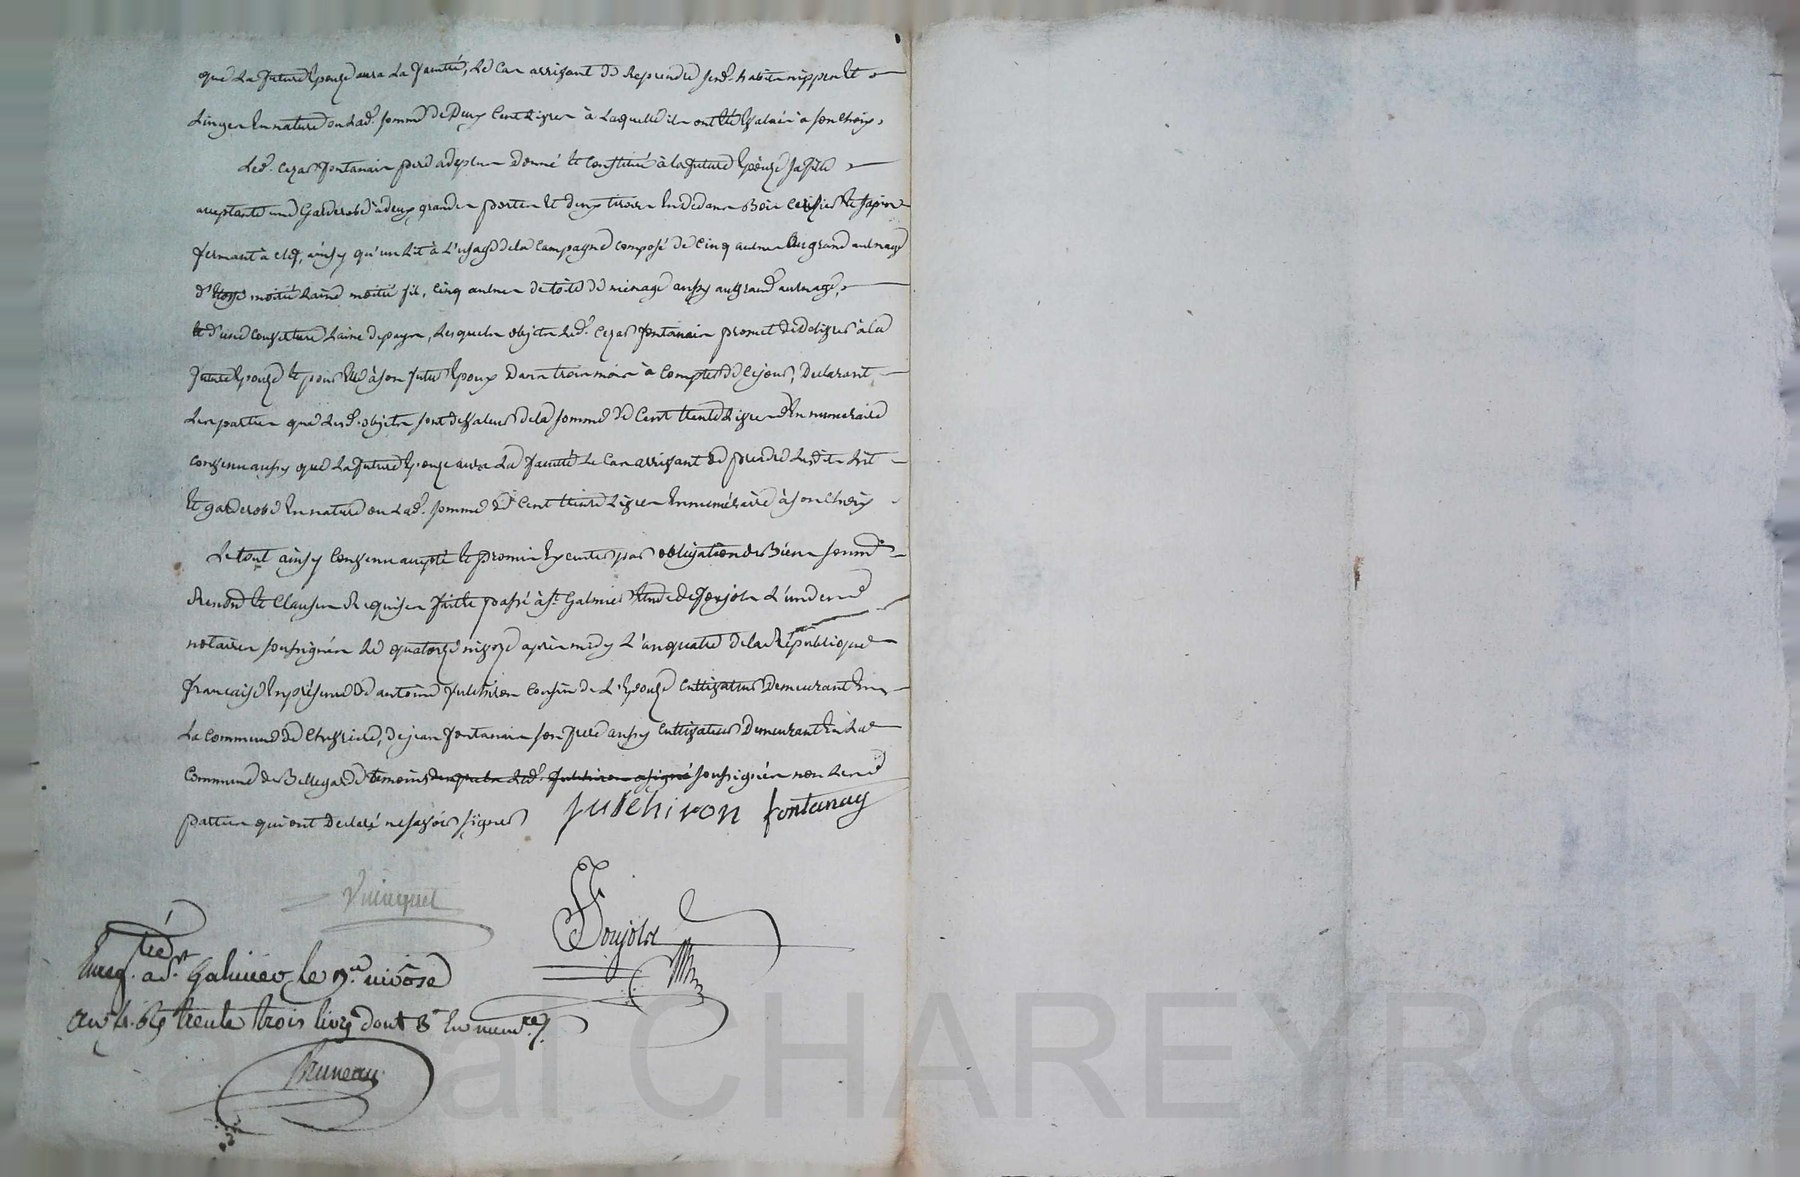 que La future Epouze aura La faculté, Le Cas arrivant de Reprendre sesd. habits nippes et
Linges En nature ou Lad. somme de Deux Cent Livres à Laquelle ils ont été Evalués a son choix.
Led. Cezar fontanais pere a de plus donné et Constitué à la future Epouze sa fille
acceptante une Garderobe à deux grandes portes et deux tiroirs En dedans Bois Cerisier et Sapin
fermant à clef, ainsy qu'un Lit à L'usage de la Campagne composé de Cinq aulnes au grand aulnage
d'Etoffe moitié Laine moitié fil, Cinq aulnes de toile de menage aussy au grand aulnage,
et d'une Couverture Laine de pays, Lesquels objets Led. Cezar fontanais promet de delivrer à la
future Epouze et pour Elle à son futur Epoux dans trois mois à Compter de Ce jour, Declarant
Les parties que Lesd. objets sont de valeur de la somme de Cent trente Livres En numeraire
convenu aussy que La future Epouze aura La faculté Le Cas arrivant de prendre Lesdits Lit
et garderobe En nature ou Lad. somme de Cent trente Livres En numéraire à son Choix
Le tout ainsy Convenu accepté et promis Executer par obligation de Biens soumd.
Renond. et Clauses Requises fait et passé à St Galmier Etude de Forjols L'un des
notaires soussignés Le quatorze nivoze après midy L'an quatre de la République
francaise En présence de antoine Juthiron Cousin de L'Epouze Cultivateur Demeurant En
La Commune de Chevrieres, de jean fontanais son frere aussy Cultivateur Demeurant En La
Commune de Bellegarde temoins soussignés non Les
parties qui ont Declaré ne savoir signer
Juthiron fontanay
Forjols
Enreg. a St Galmier le nivose
an 4. Reçu trente trois livres dont En num.re
Bruneau
CHAREYRON